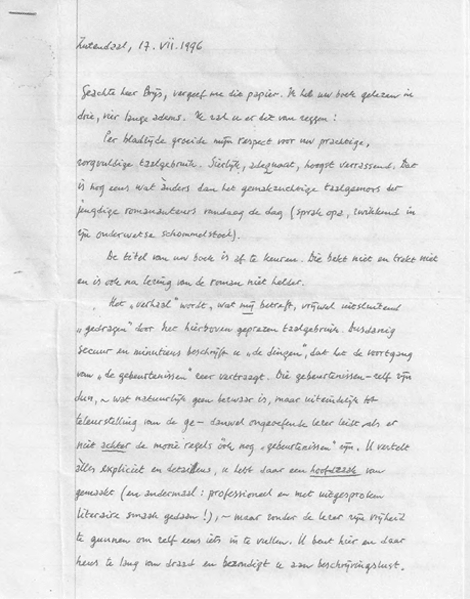 Zutendaal, 17.VII.1996
Geachte heer Brijs, vergeef me die papier. Ik heb uw boek gelezen in
drie, vier lange adems. Ik zal u er dit van zeggen:
Per bladzijde groeide mijn respect voor uw prachtige,
zorgvuldige taalgebruik. Sierlijk, adequaat, hoogst verrassend. Dat
is nog eens wat ánders dan het gemakzuchtige taalgemors der
jeugdige romanauteurs vandaag de dag (sprak opa, zwikkend in
zijn ouderwetse schommelstoel).
De titel van uw boek is af te keuren. Die bekt niet en trekt niet
en is ook na lezing van de roman niet helder.
Het „verhaal" wordt, wat mij betreft, vrijwel uitsluitend
„gedragen" door het hierboven geprezen taalgebruik. Dusdanig
secuur en minutieus beschrijft u „de dingen", dat het de voortgang
van „de gebeurtenissen" zeer vertraagt. Die gebeurtenissen-zelf zijn
dun, ~ wat natuurlijk geen bezwaar is, maar uiteindelijk tot
teleurstelling van de ge- danwel ongeoefende lezer leidt als er
niet achter de mooie regels óók nog „gebeurtenissen" zijn. U vertelt
álles expliciet en details, u hebt daar een hoofdzaak van
gemaakt (en andermaal: professioneel en met uitgesproken
literaire smaak gedaan!), ~ maar zonder de lezer zijn vrijheid
te gunnen om zelf eens iets in te vullen. U bent hier en daar
heus te lang van draad en bezondigt u aan beschrijvingslust.